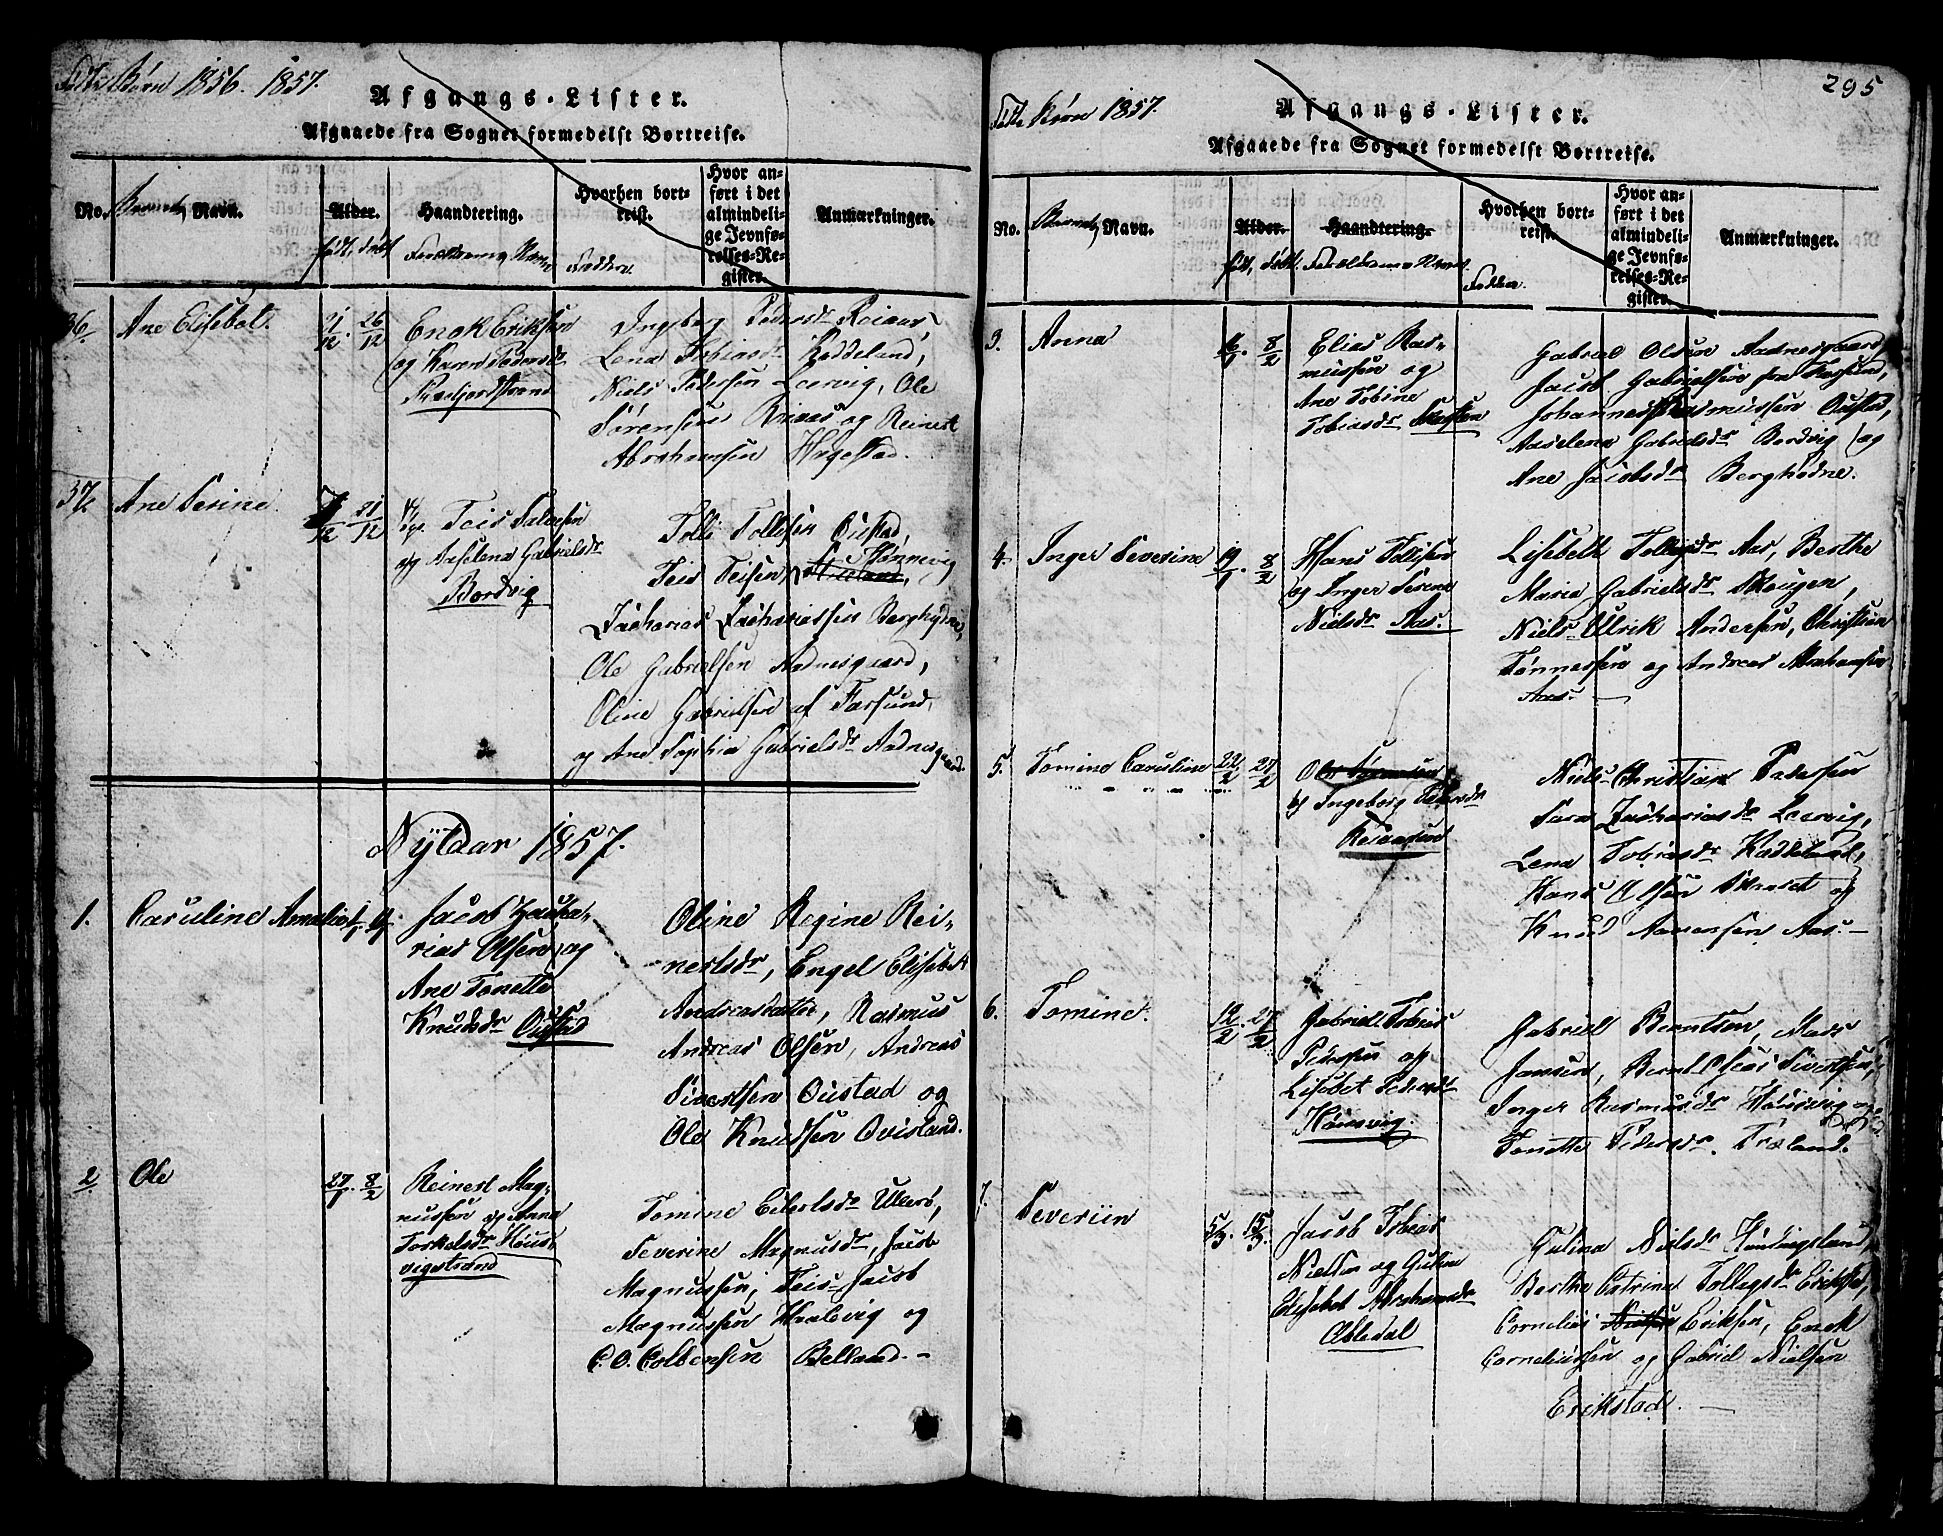 Fødte Børn 1856. 1857.
Afgangs-Lister.
Afgaaede fra Sognet formedelst Bortreise.
No. Barnets Navn. Alder. Haandtering. Hvorhen bortreist. Hvor anført i det almindelige Jevnførelses-Register. Anmærkninger.
født, døbt Forældrenes Navne Faddere
36. Ane Elisebet. 21/12. 26/12
Enok Eriksen
og Karen Pedersdr
Ingeborg Pedersdr
Lena Tobiasdr Kaddeland,
Niels Pedersen Leervig, Ole
Sørensen og Reinert
Abrahamsen Hagestad.
37. Ane Serine. 21/12
Teis Salvesen
og Aaselena Gabrielsdr
Bordvig
Tolli Tollisen Ouestad,
Teis Teisen,
Zacharias Zachariassen Berghødne,
Ole Gabrielsen Aadnesgaard,
Oline Gabrielsen af Farsund,
og Ane Sophia Gabrielsdr Aadnesgaard.
Nytaar 1857.
1. Caruline Amalie
Jacob Zacha-
rias Olsen og
Ane Tonette
Knudsdr Oustad
Oline Regine Rei-
nertsdr, Engel Elisebet
Andreasdatter, Rasmus
Andreas Olsen, Andreas
Sivertsen Oustad og
Ole Knudsen Qvisland.
2. Ole 27/1. 8/2
Reinert Mag-
nussen og Anna
Torkelsdr Høus-
vigstrand
Tomine Eilertsdr Ullerø,
Severine Magnusdr, Jacob
Magnussen, Teis Jacob
Magnussen og
C. O. Colbensen Belland. -
295
Fødte Børn 1857.
Afgangs-Lister.
Afgaaede fra Sognet formedelst Bortreise.
No. Barnets Navn. Alder. Haandtering. Hvorhen bortreist. Hvor anført i det almindelige Jevnførelses-Register. Anmærkninger.
født, døbt. Forældrenes Navne Faddere.
3. Anna 6/1. 8/2
Elias Ras-
mussen og
Ane Tobine
Tobiasdr
Gabriel Olsen Aadnesgaard,
Jacob Gabrielsen fra Farsund,
Johannes Rasmussen Oustad,
Aaselena Gabrielsdr Bordvig og
Ane Jacobsdr Berghødne.
4. Inger Severine 19/1. 8/2
Hans Tollisen
og Inger Serena
Nielsdr Aas.
Lisebeth Tollisdr Aas, Berthe
Maria Gabrielsdr Skougen,
Niels Ulrik Andersen, Christian
Tønnessen og Andreas Abrahamsen
Aas. -
5. Tomine Caruline 22/2 27/2
Ole
og Ingeborg Pedersdr
Niels Christian Pedersen
Sara Zachariasdr Leervig,
Lena Tobiasdr Kaddeland,
Hans Olsen og
Knud Aanensen Aas. -
6. Tomine. 12/2. 27/2
Gabriel Tobias
Pedersen og
Lisebet Pedersdr
Hønsvig.
Gabriel Berntsen, Mads
Jansen, Bernt Oleas Sivertsen,
Inger Rasmusdr Høusvig og
Tonette Pedersdr. Træland.
7. Severiin 5/3. 15/3.
Jacob Tobias
Nielsen og Gulin
Elisebet Abrahamsdr
Abledal
Gulina Nielsdr
Berthe Catrina Tollagsdr Erikstad,
Cornelius Nielsen, Eriksen, Enok
Corneliussen og Gabriel Nielsen
Erikstad. -